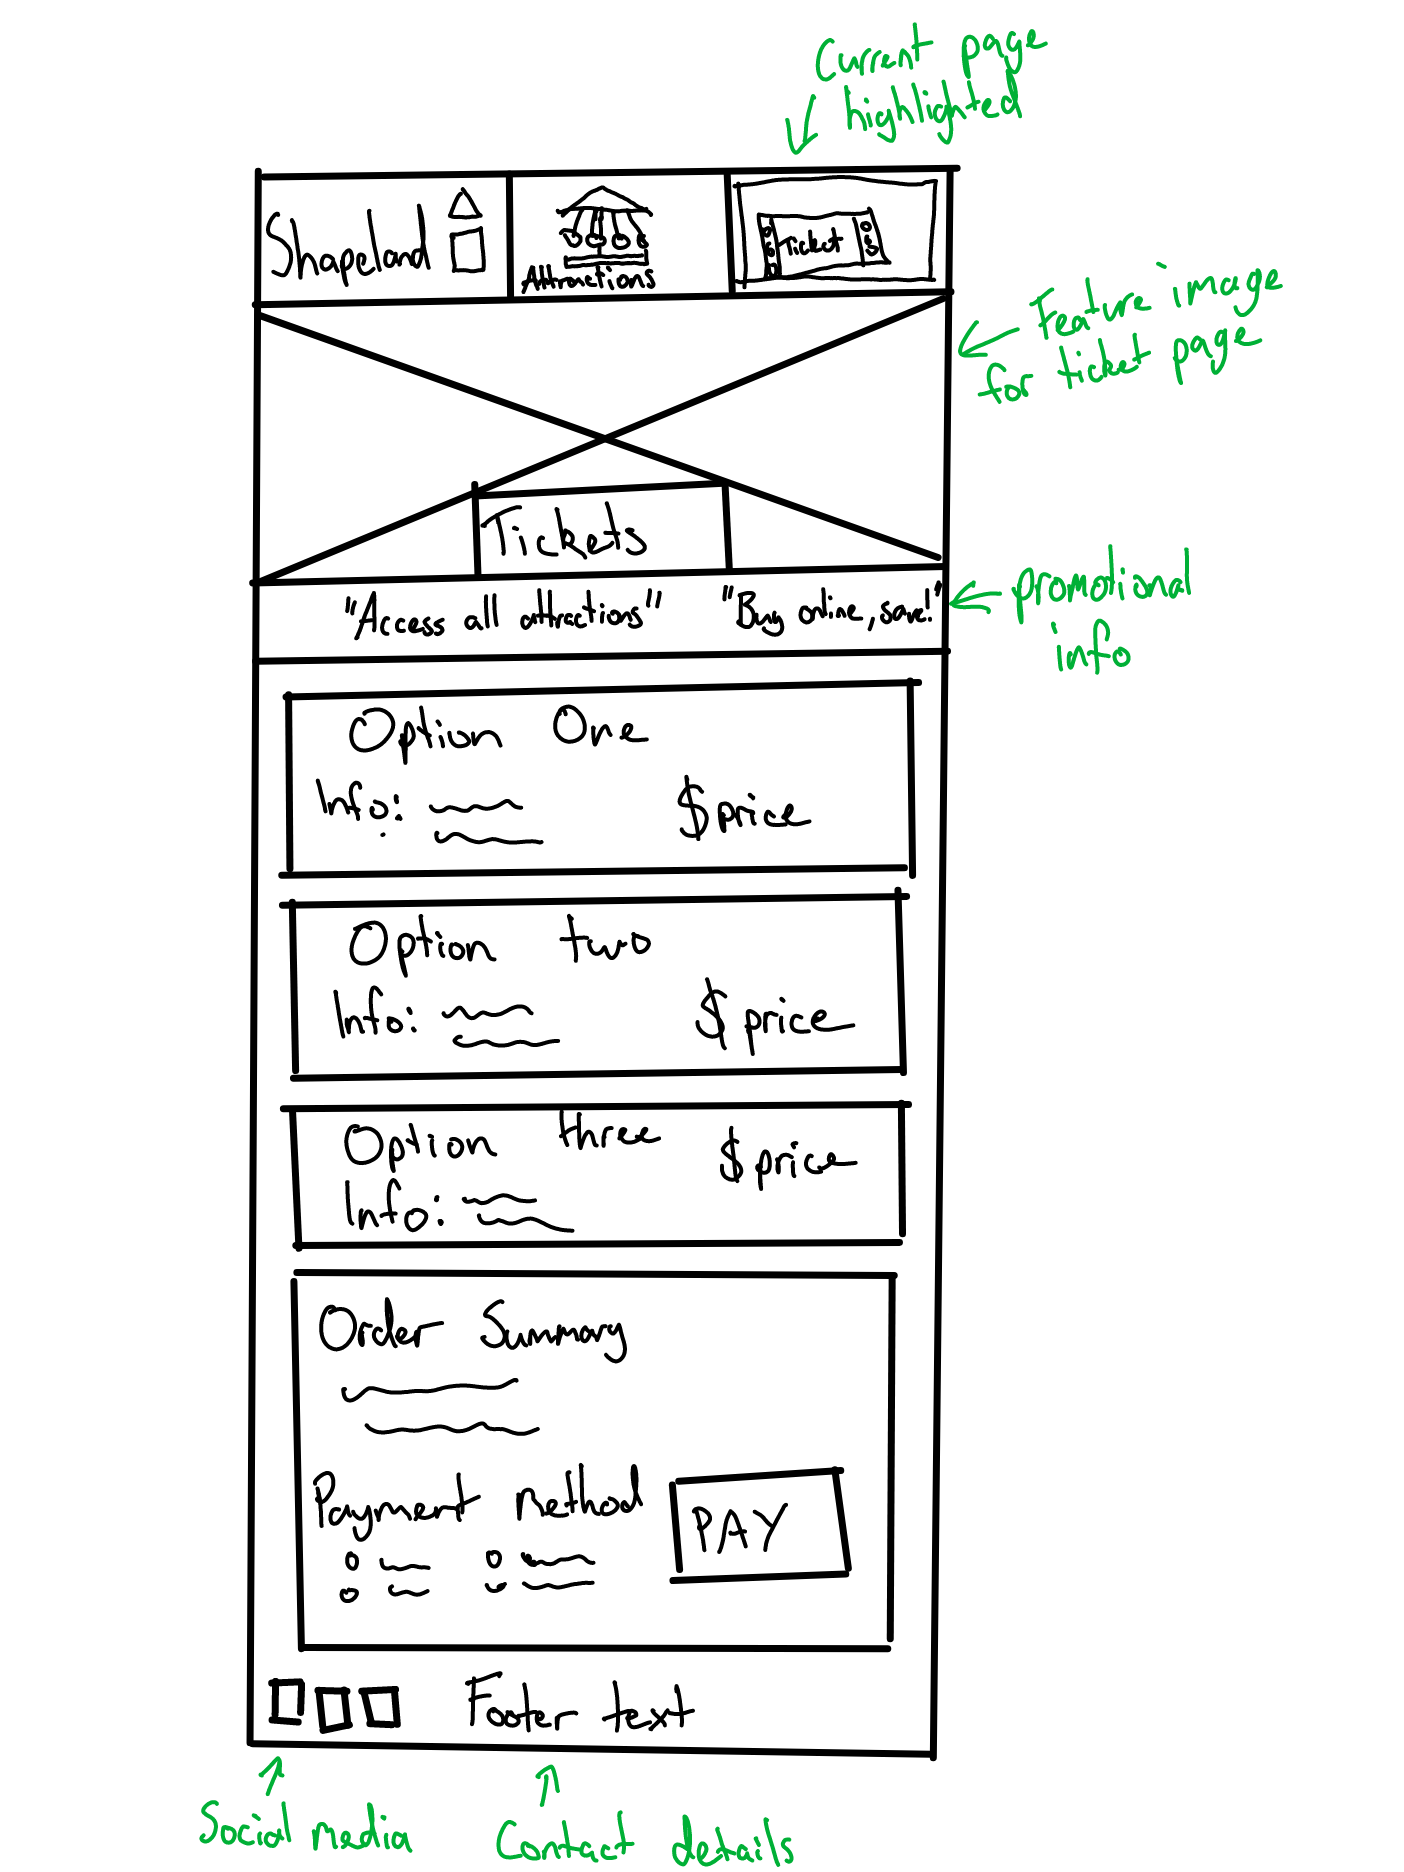 Current page
highlighted
Shapeland
Attractions
Ticket
Feature image
for ticket page
Tickets
"Access all attractions" "Buy online, save!"
promotional
info
Option One
Info: $price
Option two
Info: $price
Option three $price
Info:
Order Summary
Payment method
PAY
Footer text
Social media
Contact details